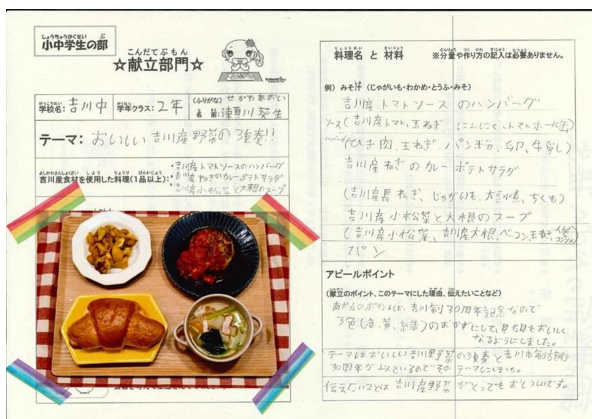 小中学生の部
☆献立部門☆
学校名: 吉川中 学年クラス: 2年
テーマ: おいしい吉川産野菜の3重奏!!
吉川産食材を使用した料理(1品以上):
・吉川産トマトソースのハンバーグ
・吉川産ねぎのカレーポテトサラダ
・吉川産小松菜と大根のスープ
料理名 と 材料 ※分量や作り方の記入は必要ありません。
例) みそ汁 (じゃがいも・わかめ・とうふ・みそ)
吉川産トマトソースのハンバーグ
ソース(吉川産トマト、玉ねぎ、にんにく、トマトホール缶)
(ひき肉、玉ねぎ、パン粉、卵、牛乳)
吉川産ねぎのカレーポテトサラダ
(吉川産長ねぎ、じゃがいも、ちくわ)
吉川産小松菜と大根のスープ
(吉川産小松菜、吉川産大根、ベーコン、玉ねぎ、人参
パン
アピールポイント
(献立のポイント、このテーマにした理由、伝えたいことなど)
ポイントは、吉川市制30周年記念なので
3色(赤、黄、緑)のおかずにして、見た目もおいしく
なるようにしました。
テーマはおいしい吉川野菜の3重奏と吉川市制施行
30周年が
テーマにしました。
伝えたいことは吉川産野菜がとっても